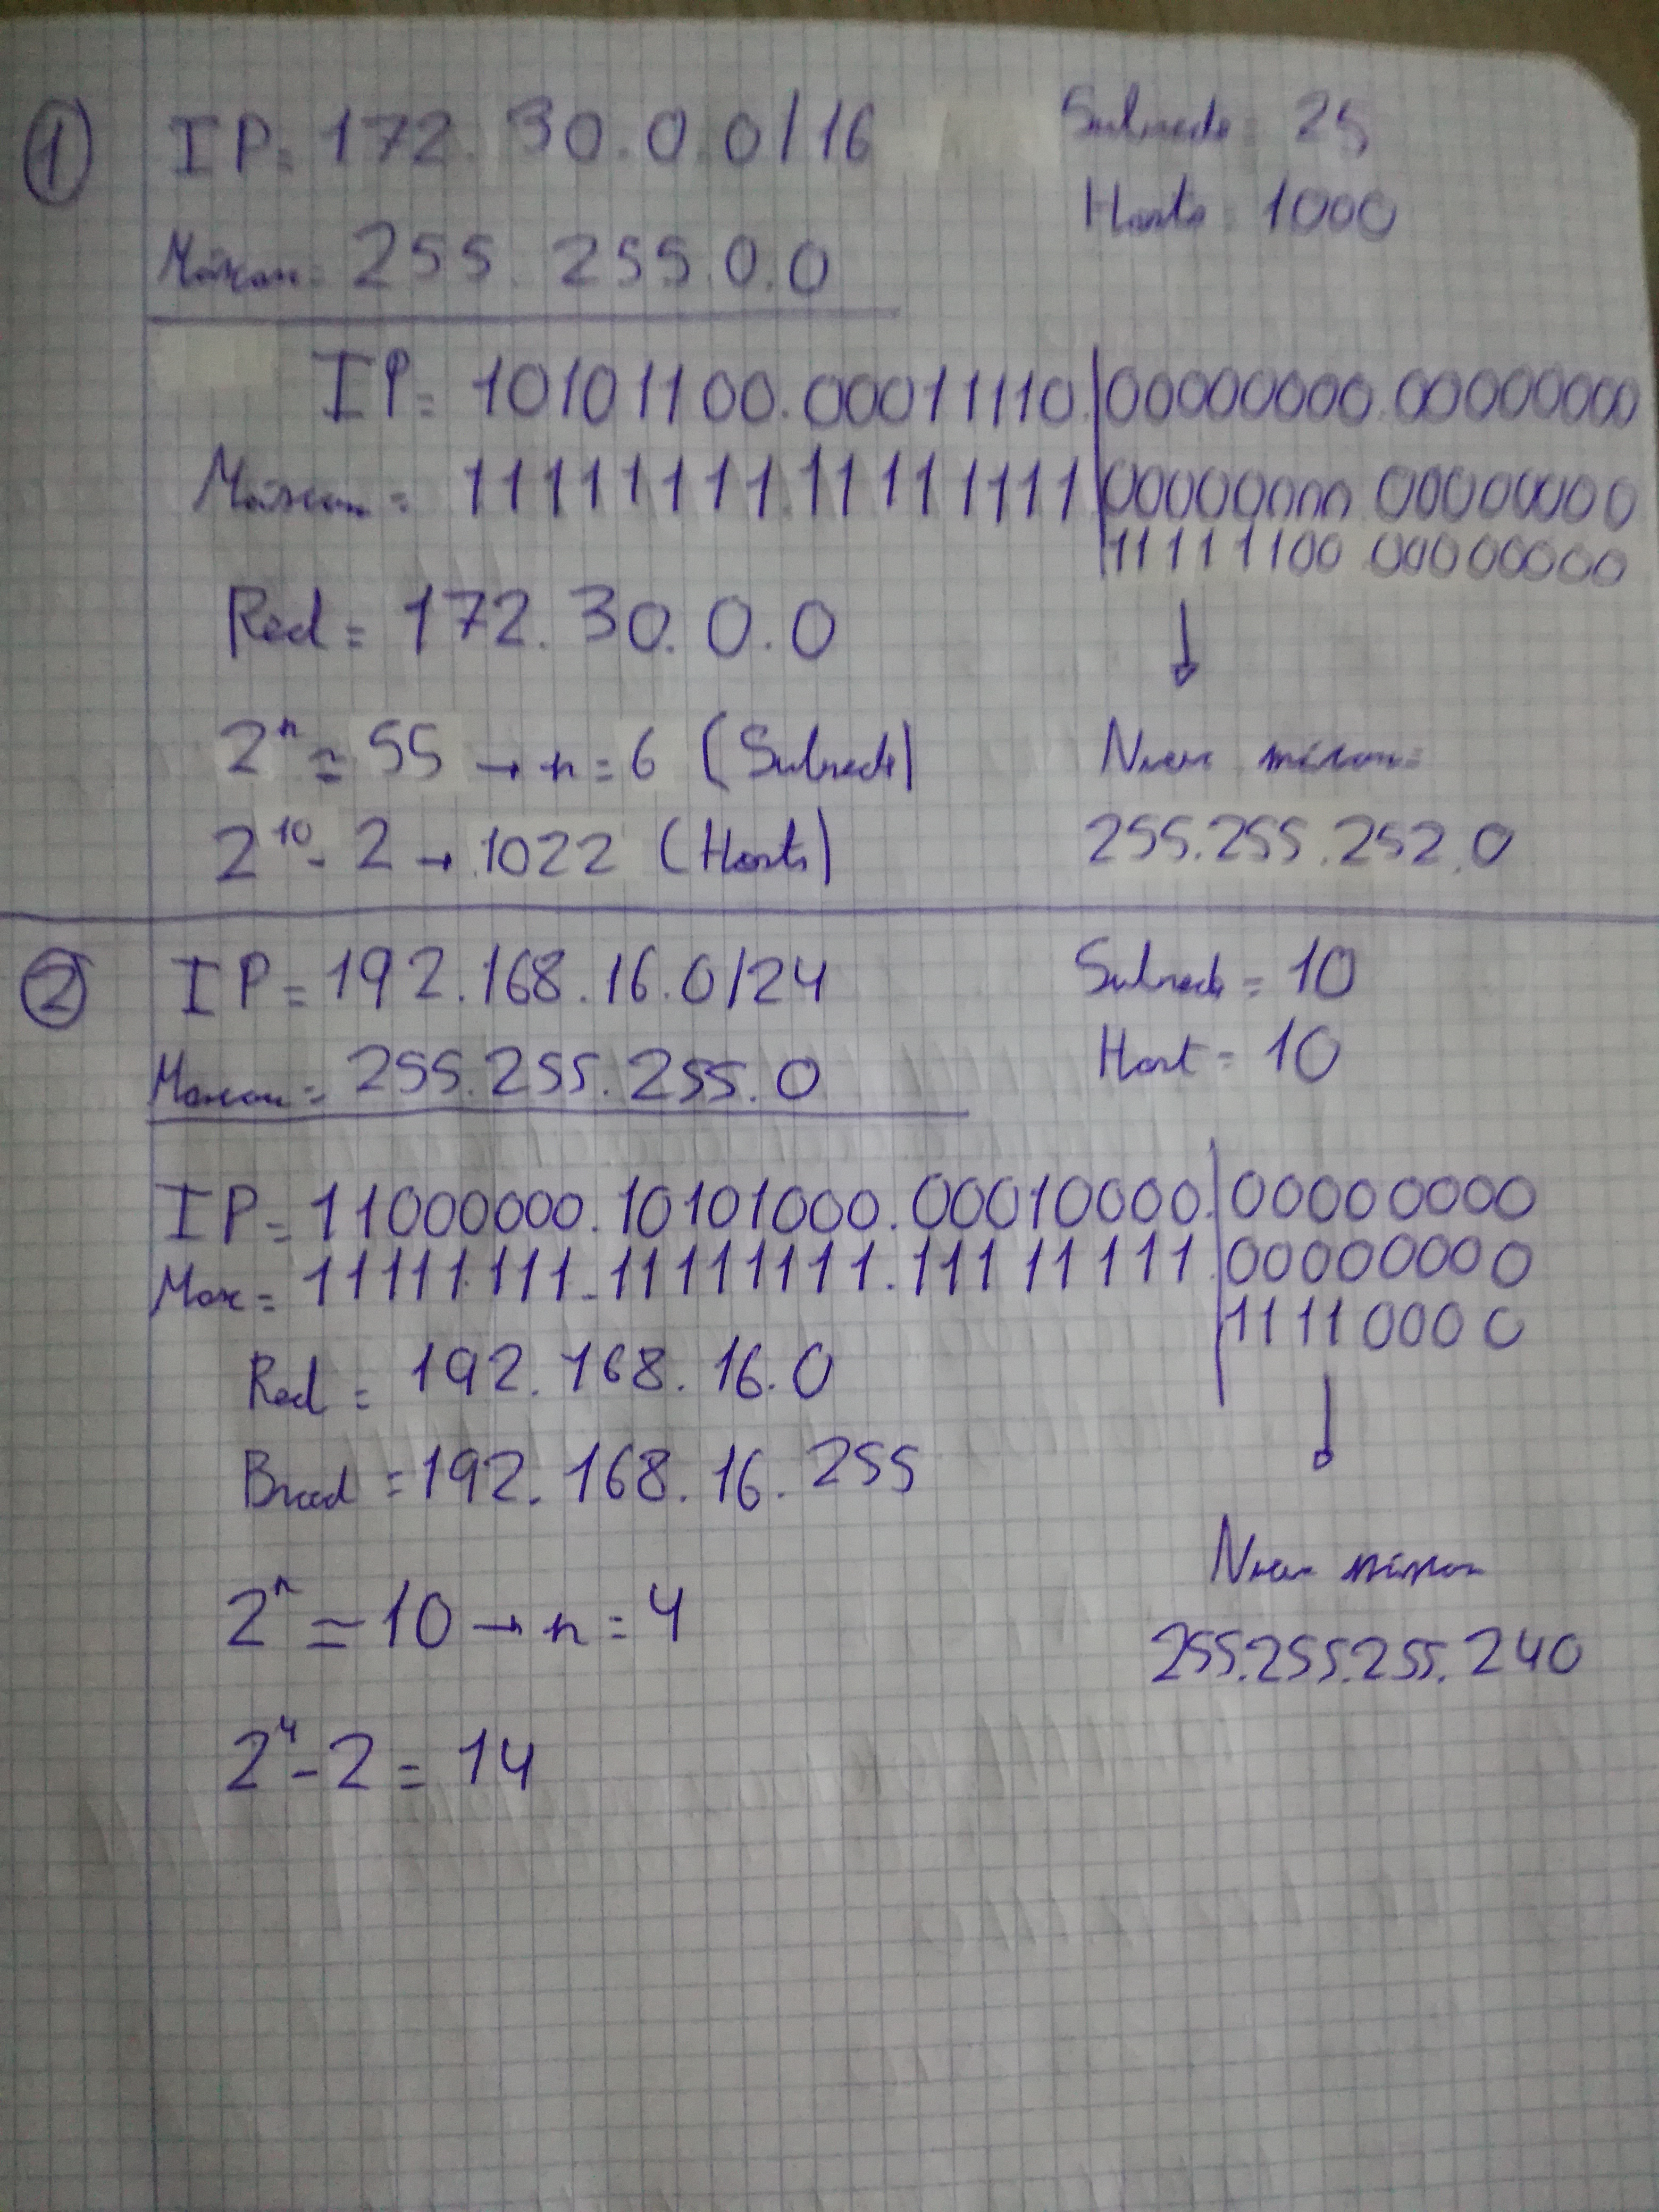 1 IP= 172.30.0.0/16 Subreds= 25
Hosts= 1000
Máscara= 255.255.0.0
IP= 10101100.00011110.|00000000.00000000
Máscara= 11111111.11111111.|00000000.00000000
11111100 00000000
Red= 172.30.0.0
2^n ≃ 55 → n=6 (Subreds)
Nueva máscara=
2^10-2 → 1022 (Hosts)
255.255.252.0
2 IP= 192.168.16.0/24 Subreds= 10
Host= 10
Máscara= 255.255.255.0
IP= 11000000.10101000.00010000.|00000000
Masc= 11111111.11111111.11111111.|00000000
11110000
Red= 192.168.16.0
Broad= 192.168.16.255
Nueva máscara
2^n ≃ 10 → n=4
255.255.255.240
2^4-2= 14